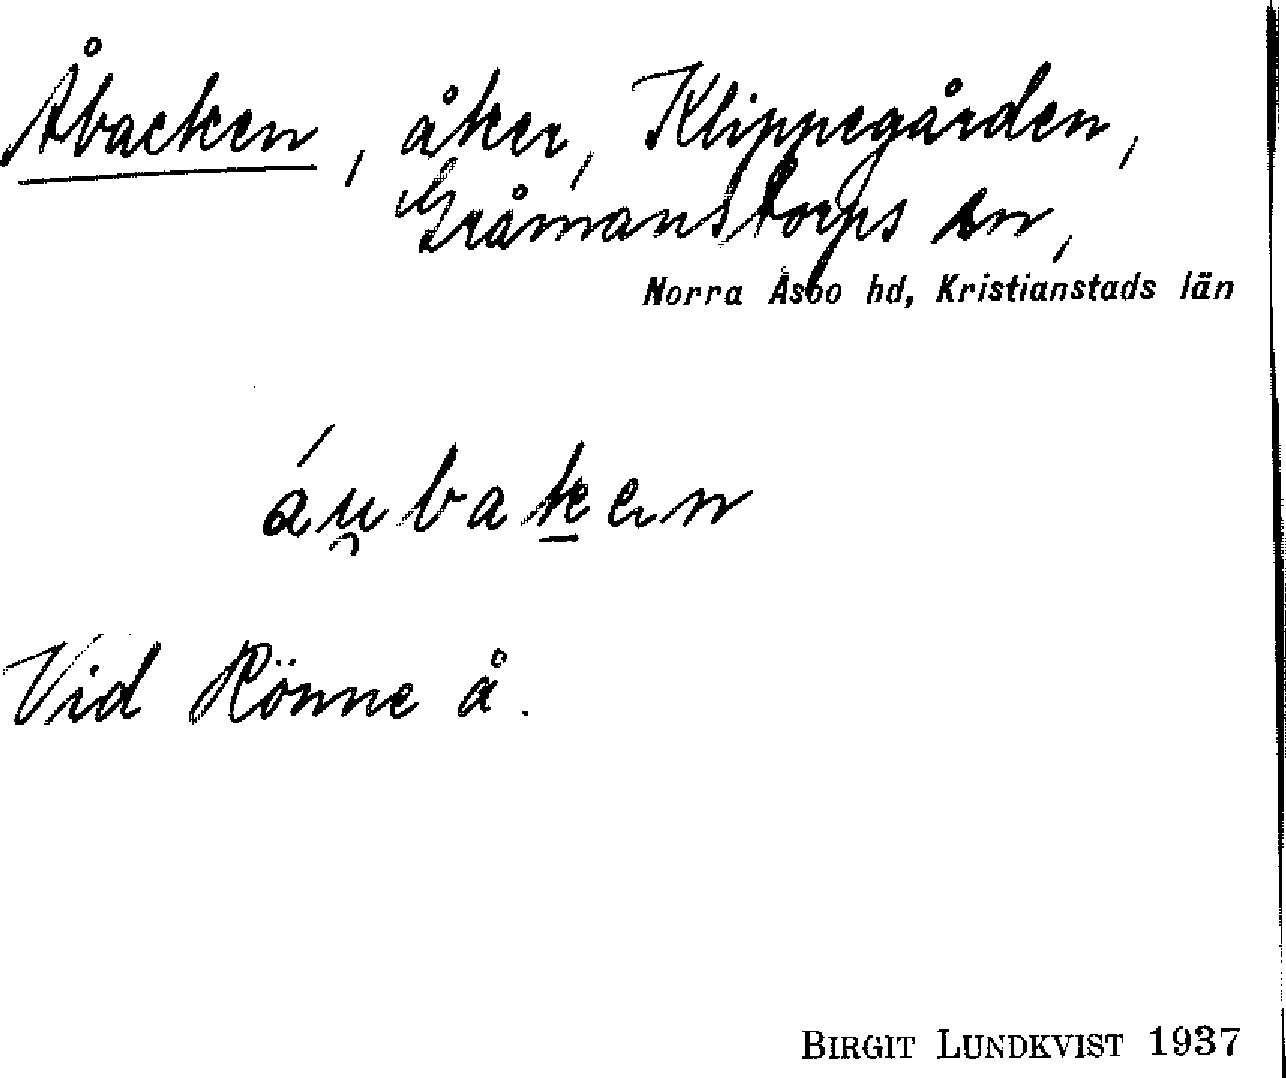 Åbacken, åker, Klippegården,
Gråmanstorps sn,
Norra Åsbo hd, Kristianstads län
áu̯bak̲en
Vid Rönne å.
BIRGIT LUNDKVIST 1937